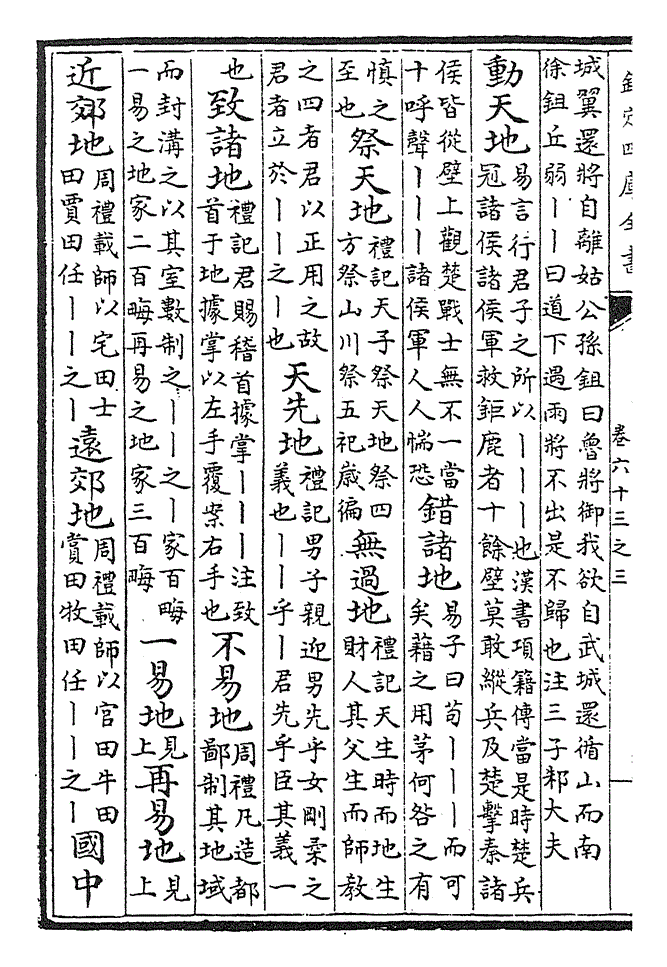 欽定四庫全書 卷六十三之三
城翼還將自離姑公孫鉏曰魯將御我欲自武城還循山而南徐鉏丘弱丨丨曰道下遇雨將不出是不歸也注三子邾大夫
動天地易言行君子之所以丨丨丨也漢書項籍傳當是時楚兵冠諸侯諸侯軍救鉅鹿者十餘壁莫敢縱兵及楚擊秦諸
侯皆從壁上觀楚戰士無不一當十呼聲丨丨丨諸侯軍人人惴恐錯諸地易子曰苟丨丨丨而可矣藉之用茅何咎之有
慎之至也祭天地禮記天子祭天地祭四方祭山川祭五祀歲徧無過地禮記天生時而地生財人其父生而師教
之四者君以正用之故君者立於丨丨之丨也天先地禮記男子親迎男先乎女剛柔之義也丨丨乎丨君先乎臣其義一
也致諸地禮記君賜稽首據掌丨丨丨注致首于地據掌以左手覆案右手也不易地周禮凡造都鄙制其地域
而封溝之以其室數制之丨丨之丨家百畮一易之地家二百畮再易之地家三百畮一易地見上再易地見上
近郊地周禮載師以宅田士田賈田任丨丨之丨遠郊地周禮載師以官田牛田賞田牧田任丨丨之丨國中